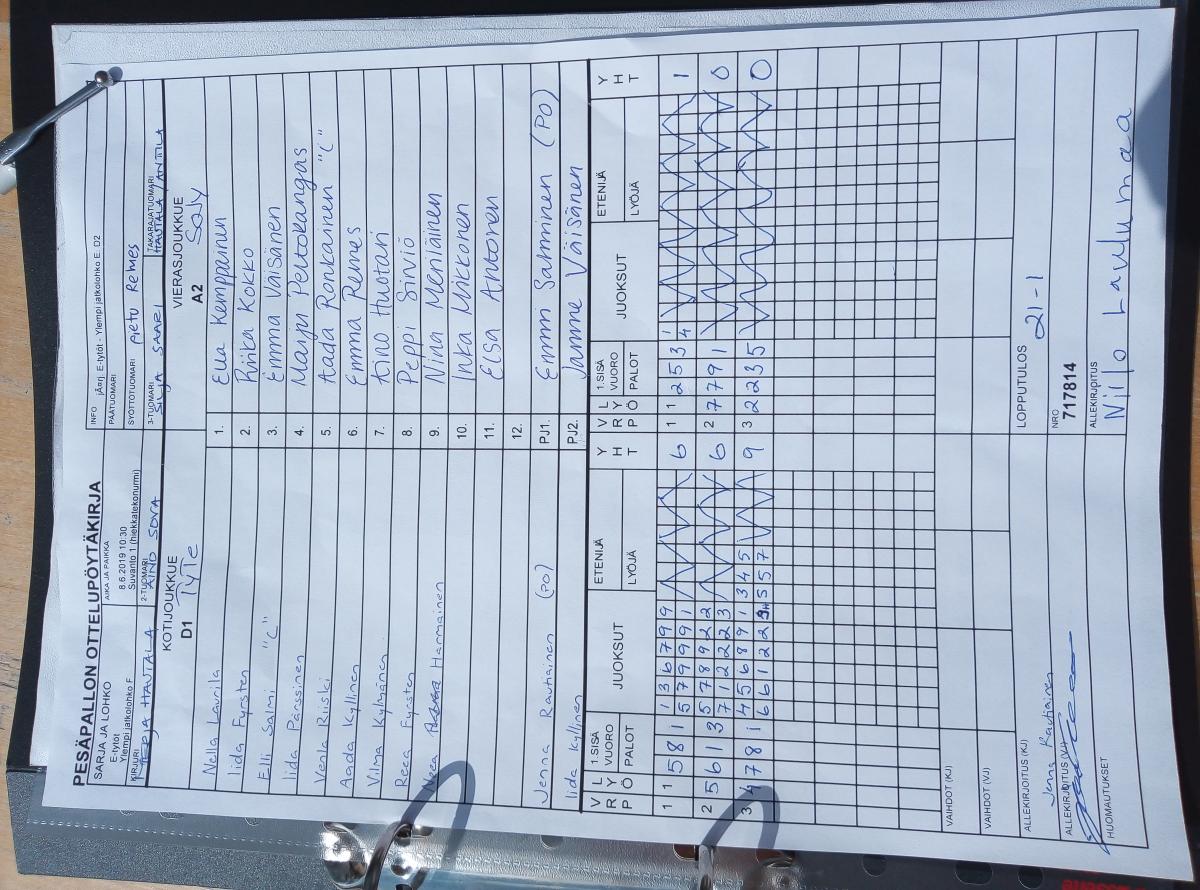 PESÄPALLON OTTELUPÖYTÄKIRJA
SARJA JA LOHKO
E-tytöt
Ylempi jatkolohko F
AIKA JA PAIKKA
8.6.2019 10:30
Suvanto 1 (hiekkatekonurmi)
INFO jAorj E-tytöt - Ylempi jatkolohko E. D2
PÄÄTUOMARI
SYÖTTÖTUOMARI Pietu Remes
KIRJURI MERJA HAUTALA
2-TUOMARI AINO SOVA
3-TUOMARI SILJA SAARI
TAKARAJATUOMARI HAUTALA / ANTTILA
KOTIJOUKKUE
D1 TyTe
VIERASJOUKKUE
A2 SoJy
Nella Laurila 1. Eua Kemppainen
Iida Fyrsten 2. Riika Kokko
Elli Salmi "C" 3. Emma Väisänen
Iida Parssinen 4. Marju Peutokangas
Venla Riiski 5. Aada Ronkainen "C"
Aada Kyllinen 6. Emma Remes
Vilma Kylmänen 7. Aino Huotari
Reea Fyrsten 8. Peppi Sirviö
Neea Harmainen 9. Nina Meriäinen
10. Inka Mikkonen
11. Elsa Antonen
12.
Jenna Rautiainen (PO) PJ1. Emmi Sahminen (PO)
Iida Kyllinen PJ2. Janne Väisänen
V L R Y P Ö 1.SISÄ VUORO PALOT JUOKSUT ETENIJÄ LYÖJÄ Y H T
V L R Y P Ö 1.SISÄ VUORO PALOT JUOKSUT ETENIJÄ LYÖJÄ Y H T
1 1 5 8 1 1 3 6 7 9 9 6 1 1 2 5 3 1
5 7 9 9 9 1 4
2 5 6 1 3 5 7 8 9 2 2 6 2 7 7 9 1 0
7 1 2 2 2 3
3 4 7 8 1 4 5 6 8 9 1 3 4 5 9 3 2 2 3 5 0
6 6 1 2 2 5 5 7
VAIHDOT (KJ)
VAIHDOT (VJ)
ALLEKIRJOITUS (KJ)
Jenna Rautiainen
LOPPUTULOS
21-1
ALLEKIRJOITUS (VJ)
NRO
717814
HUOMAUTUKSET
ALLEKIRJOITUS
Niilo Lauluma